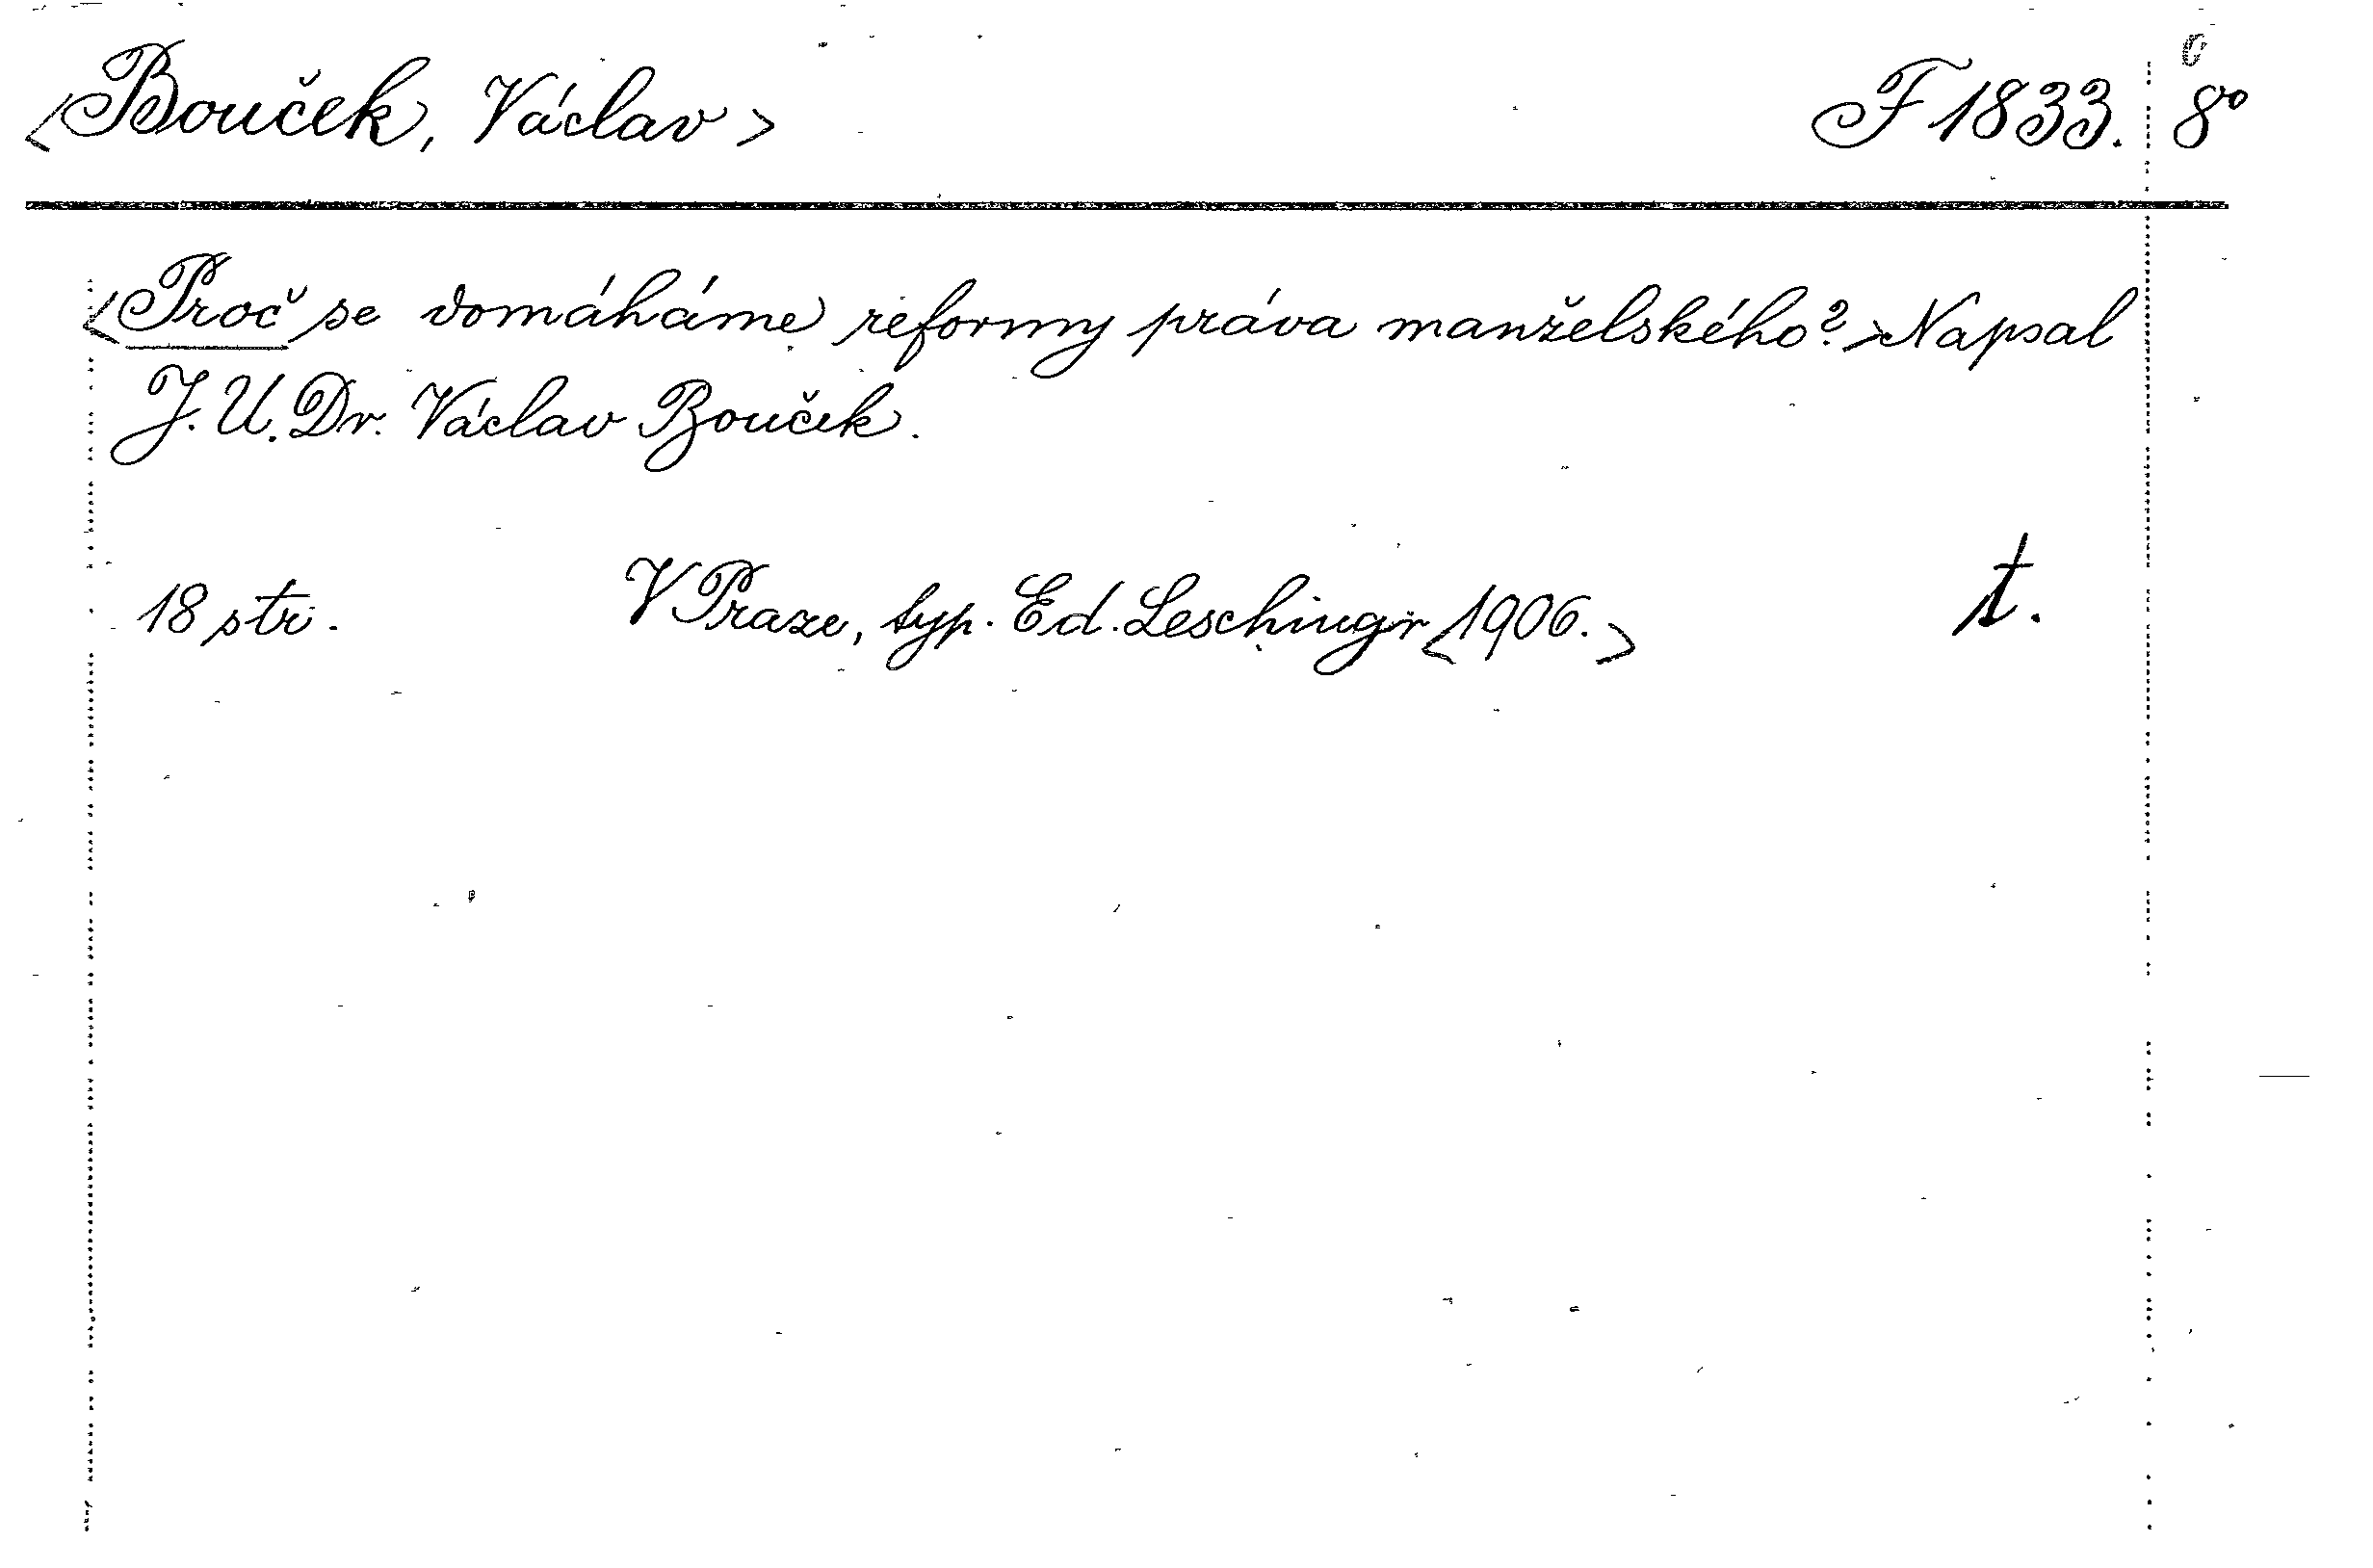 <Bouček, Václav> F 1833. 8°
<Proč se domáháme reformy práva manželského?> Napsal
J. U. Dr. Václav Bouček.
18 str. V Praze, typ. Ed. Leschingr <1906.> t.